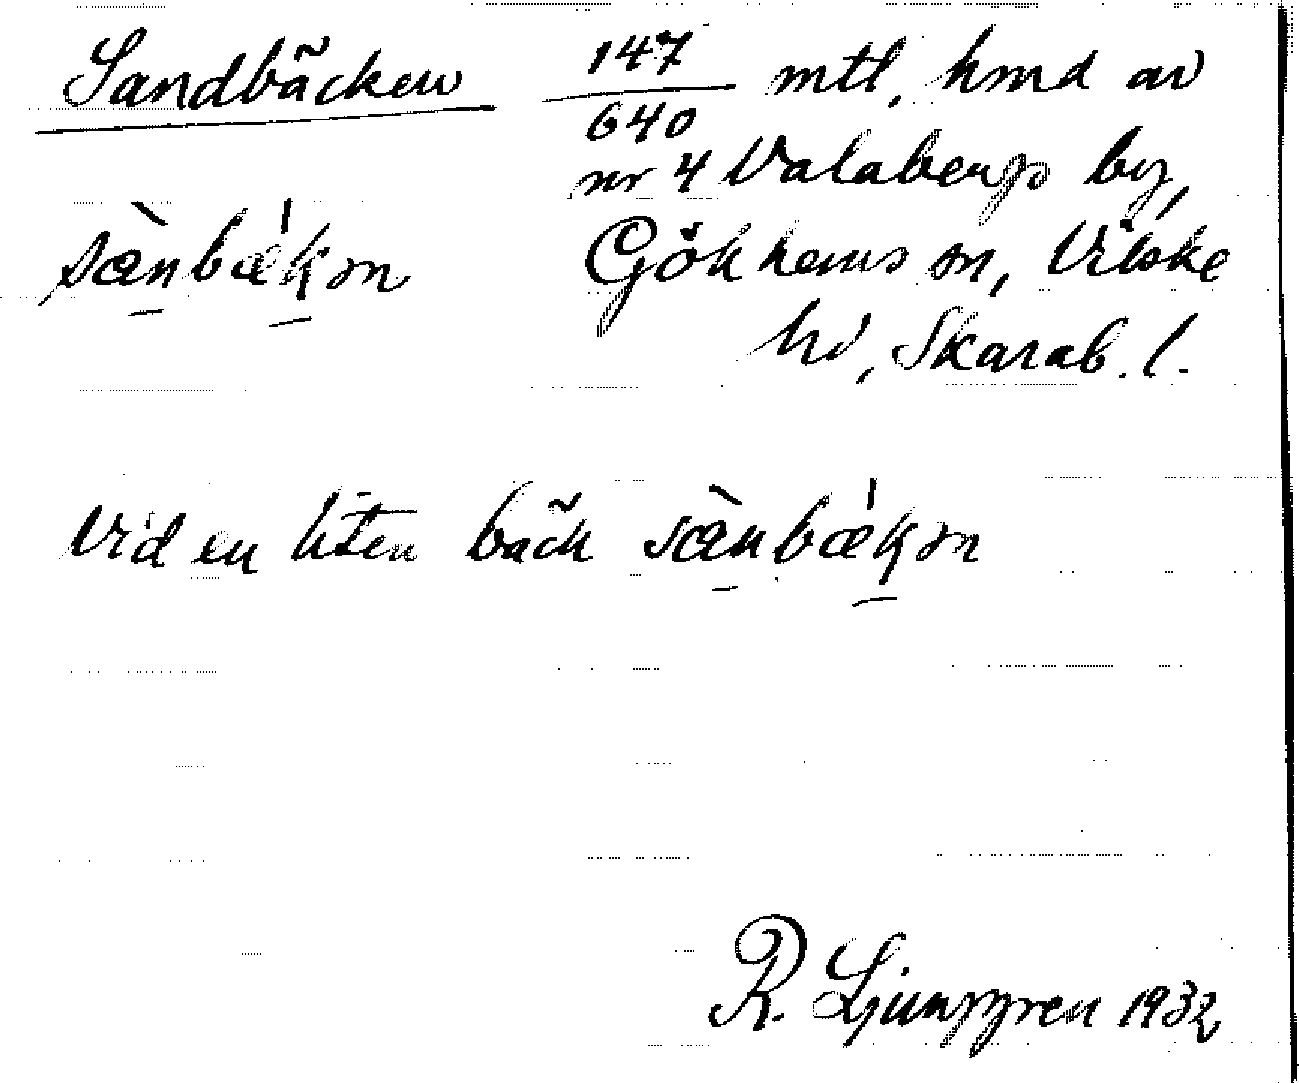 Sandbäcken 147/640 mtl, hmd av
nr 4 Valabergs by,
sæ̀nbǽkən Gökhems sn, Vilske
hd, Skarab. l.
Vid en liten bäck sæ̀nbǽkən
R. Ljunggren 1932